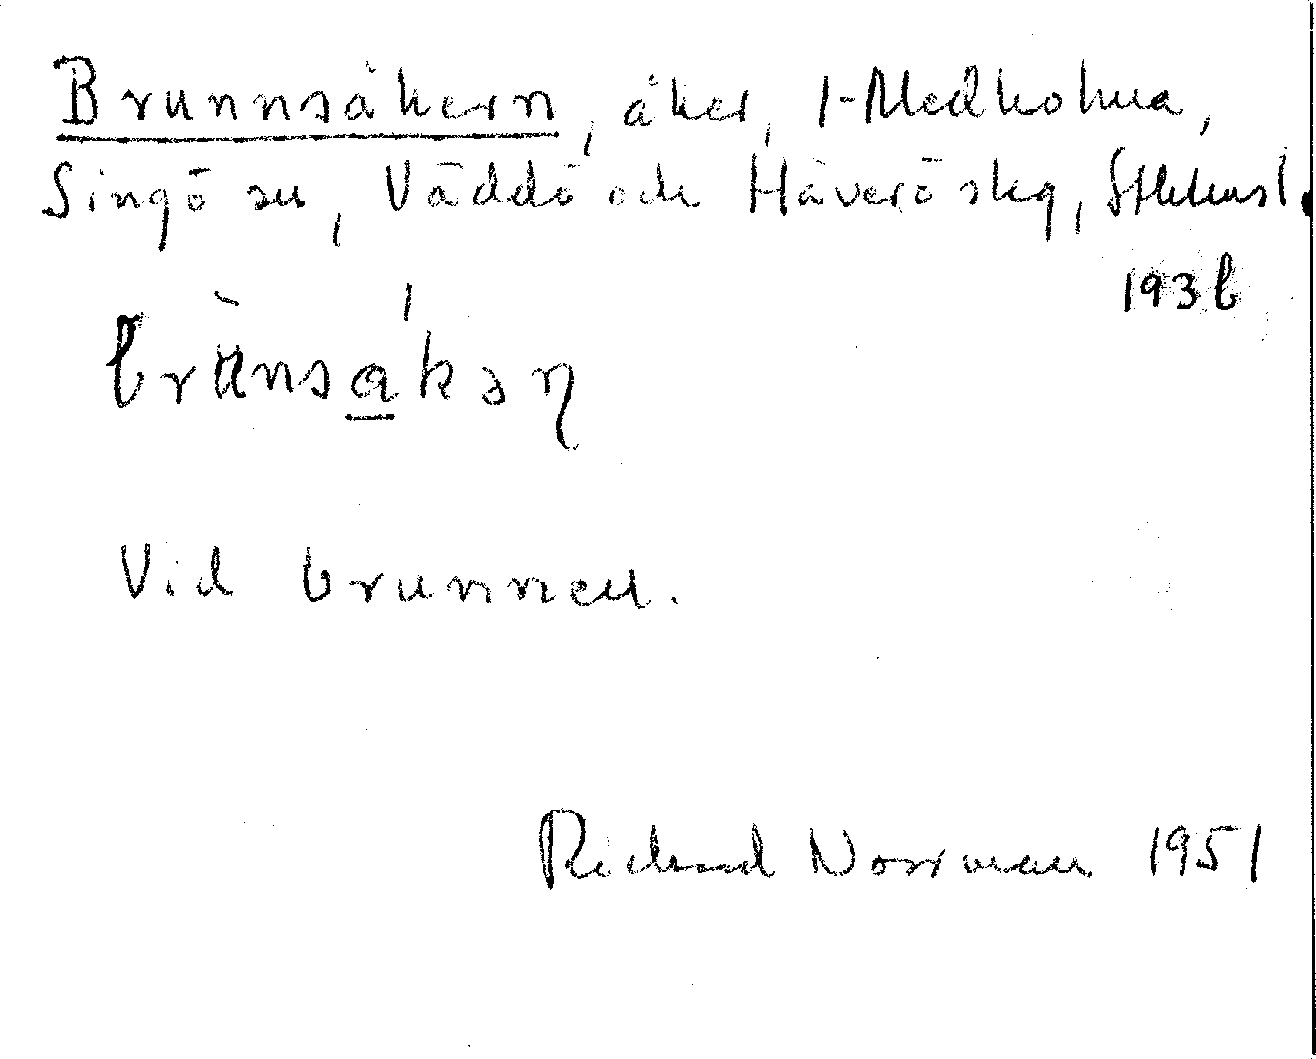 Brunnsåkern, åker, 1-Medholma,
Singö sn, Väddö och Häverö skg, Sthlmsl.
193 b
Vid brunnen.
Richard Norrman 1951